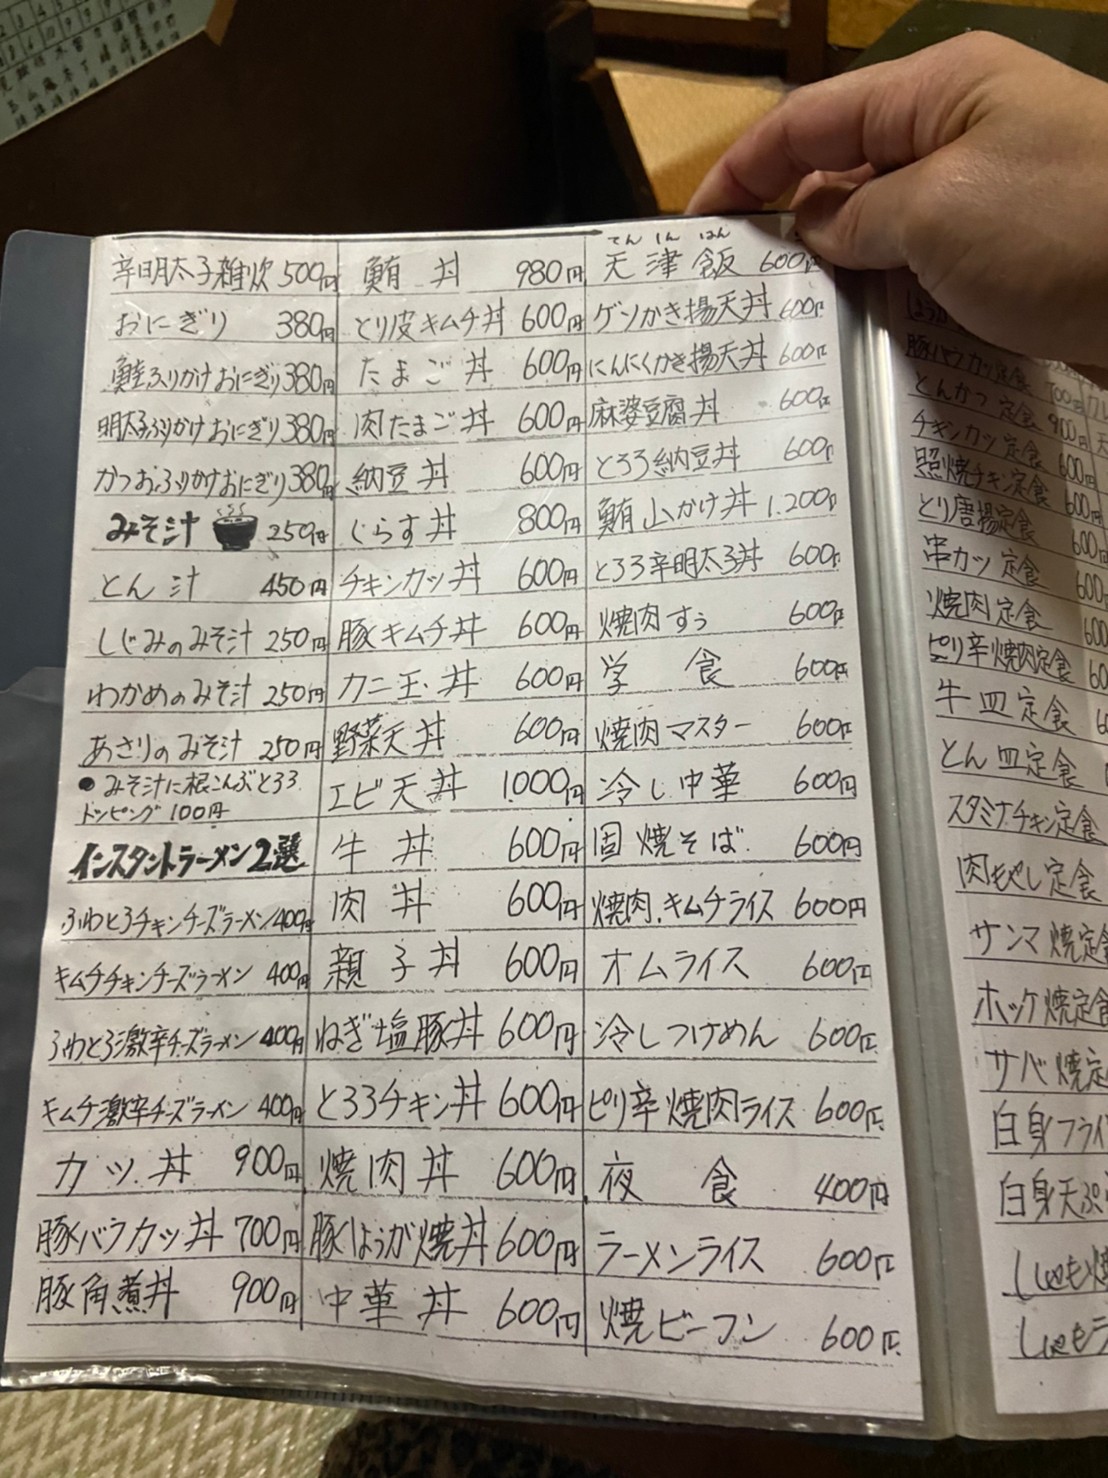 辛明太子雑炊 500円
おにぎり 380円
鮭ふりかけおにぎり 380円
明太子ふりかけおにぎり 380円
かつおふりかけおにぎり 380円
みそ汁 250円
とん汁 450円
しじみのみそ汁 250円
わかめのみそ汁 250円
あさりのみそ汁 250円
●みそ汁に根こんぶとろろ
トッピング 100円
インスタントラーメン2選
ふわとろチキンチーズラーメン 400円
キムチチキンチーズラーメン 400円
ふわとろ激辛チーズラーメン 400円
キムチ激辛チーズラーメン 400円
カツ丼 900円
豚バラカツ丼 700円
豚角煮丼 900円
鮪丼 980円
とり皮キムチ丼 600円
たまご丼 600円
肉たまご丼 600円
納豆丼 600円
しらす丼 800円
チキンカツ丼 600円
豚キムチ丼 600円
カニ玉丼 600円
野菜天丼 600円
エビ天丼 1000円
牛丼 600円
肉丼 600円
親子丼 600円
ねぎ塩豚丼 600円
とろろチキン丼 600円
焼肉丼 600円
豚しょうが焼丼 600円
中華丼 600円
てんしんはん
天津飯 600円
ゲソかき揚天丼 600円
にんにくかき揚天丼 600円
麻婆豆腐丼 600円
とろろ納豆丼 600円
鮪山かけ丼 1.200円
とろろ辛明太子丼 600円
焼肉すぅ 600円
学食 600円
焼肉マスター 600円
冷し中華 600円
固焼そば 600円
焼肉.キムチライス 600円
オムライス 600円
冷しつけめん 600円
ピリ辛焼肉ライス 600円
夜食 400円
ラーメンライス 600円
焼ビーフン 600円
豚バラカツ定食 700円
とんかつ定食 900円
チキンカツ定食 600円
照焼チキン定食 600円
とり唐揚定食 600円
串カツ定食 600
焼肉定食 600
ピリ辛焼肉定食 60
牛皿定食 6
とん皿定食
スタミナチキン定食
肉もやし定食
サンマ焼定食
ホッケ焼定食
サバ焼定
白身フライ
白身天ぷ
ししゃも焼
ししゃもラ